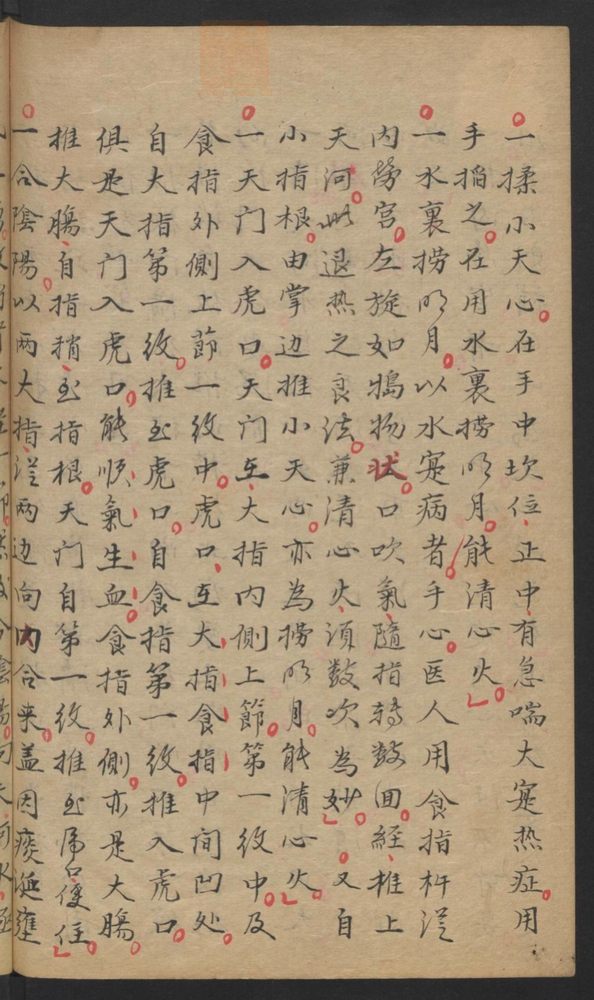 一揉小天心在手中坎位正中有急喘大寔热症用
手搯之在用水裏捞明月能清心火
一水裏捞明月以水寔病者手心医人用食指杵從
内勞宫左旋如搗物状口吹氣隨指轉数囬經推上
天河此退热之良法兼清心火須数次為妙又自
小指根由掌边推小天心亦為捞明月能清心火
一天门入虎口天门在大指内側上節第一纹中及
食指外側上節一纹中虎口在大指食指中间凹处
自大指第一纹推至虎口自食指第一纹推入虎口
俱是天门入虎口能順氣生血食指外側亦是大腸
推大腸自指稍至指根天门自第一纹推至虎口便住
一合陰陽以两大指從两边向内合来盖因痰涎壅